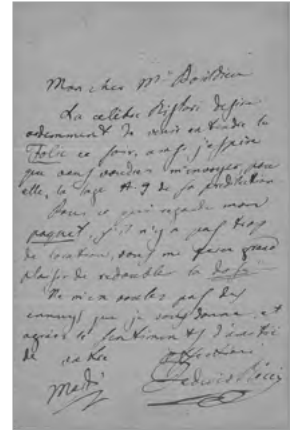 Mon cher Mr
La célèbre Ristori désire
ardemment de venir entendre la
Folie ce soir, aussi j'espère
que vous voudrez m'envoyer, pour
elle, la loge A-9 de
Pour ce qui regarde mon
paquet, s'il n'y a pas trop
de location, vous me ferez grand
plaisir de redoubler la dose.
Ne m'en voulez pas des
ennuys que je vous donne, et
agréez les sentiments d'amitié
de votre
Mardi Federico Ricci